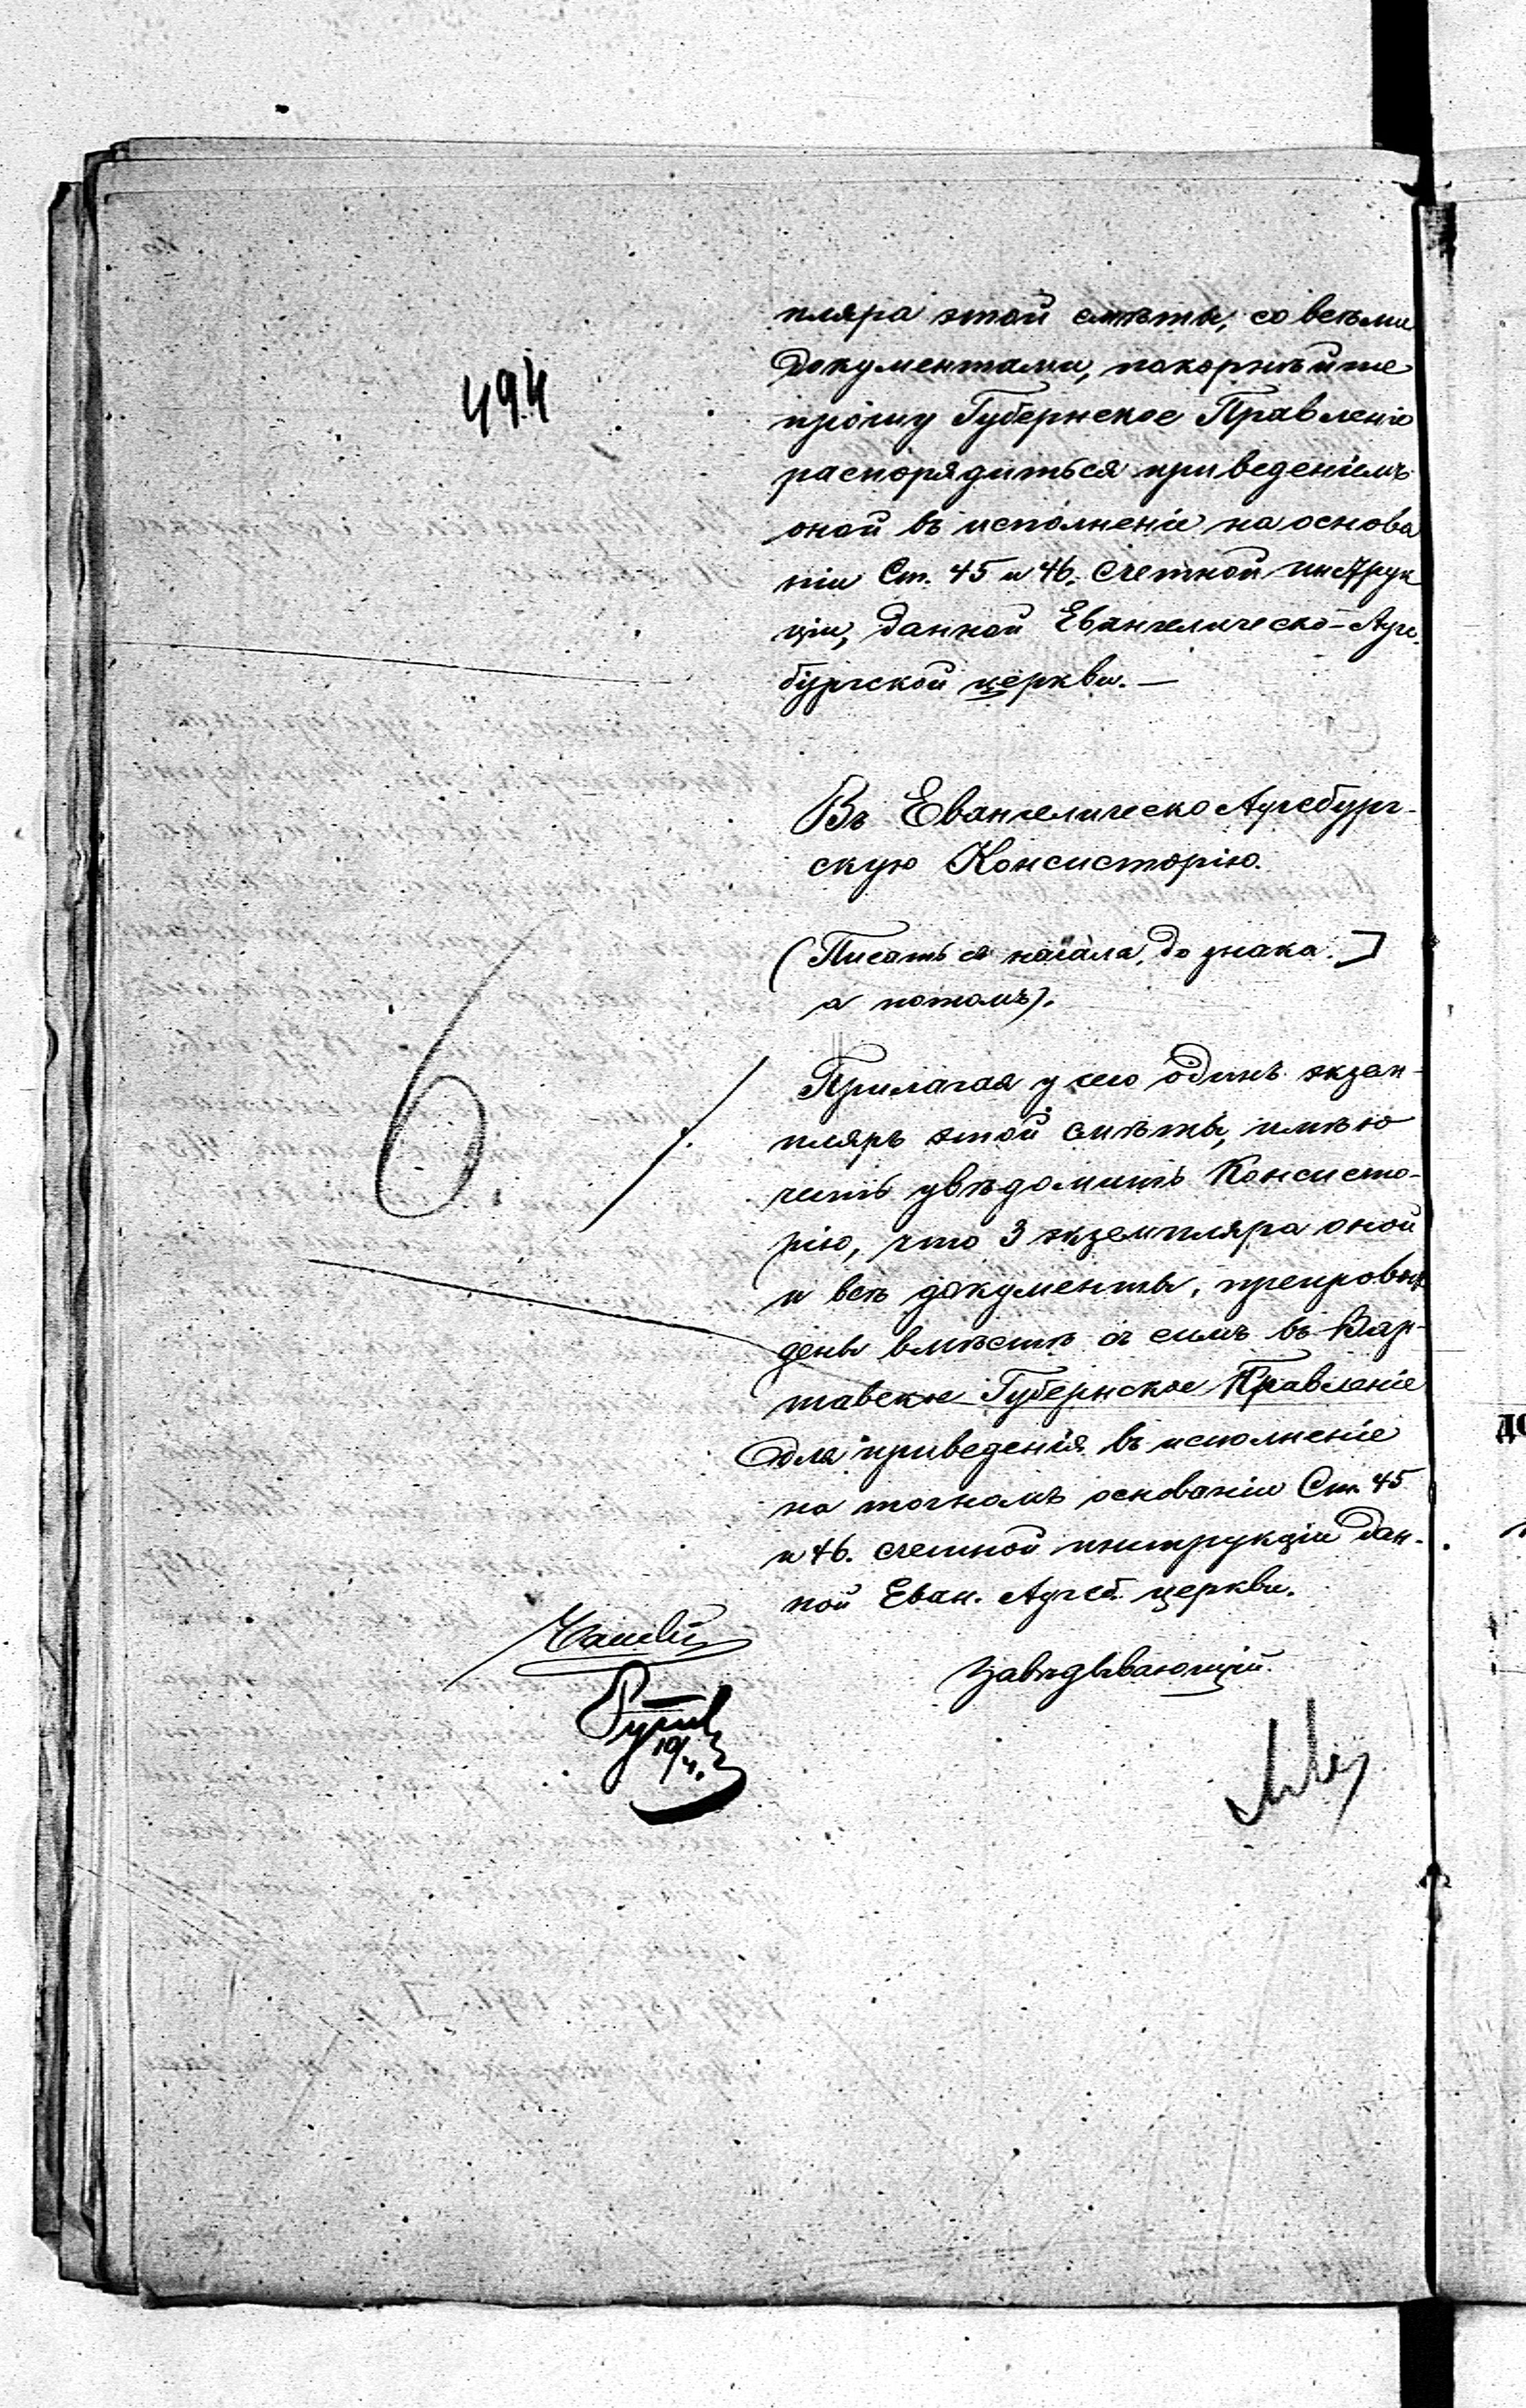 494
пляра этой смѣты, со всѣми
документами, покорнѣйше
прошу Губернское Правленіе
распорядиться приведеніемъ
оной въ исполненіе на основа
ніи Ст. 45 и 46. счетной инструк
ціи, данной Евангелическо-Аугс.
бургской церкви. —
Въ Евангелическо Аугсбург-
скую Консисторію.
(Писать съ начала, до знака. ]
а потомъ).
Прилагая у сего одинъ экзем-
пляръ этой смѣты, имѣю
честь увѣдомить Консисто-
рію, что 3 экземпляра оной
и всѣ документы, препровож
дены вмѣстѣ съ симъ въ Вар-
шавское Губернское Правленіе
для приведенія въ исполненіе
на точномъ основаніи Ст. 45
и 46. счетной инструкціи дан-
ной Еван. Аугсб. церкви.
Завѣдывающій.
10/4.
6.